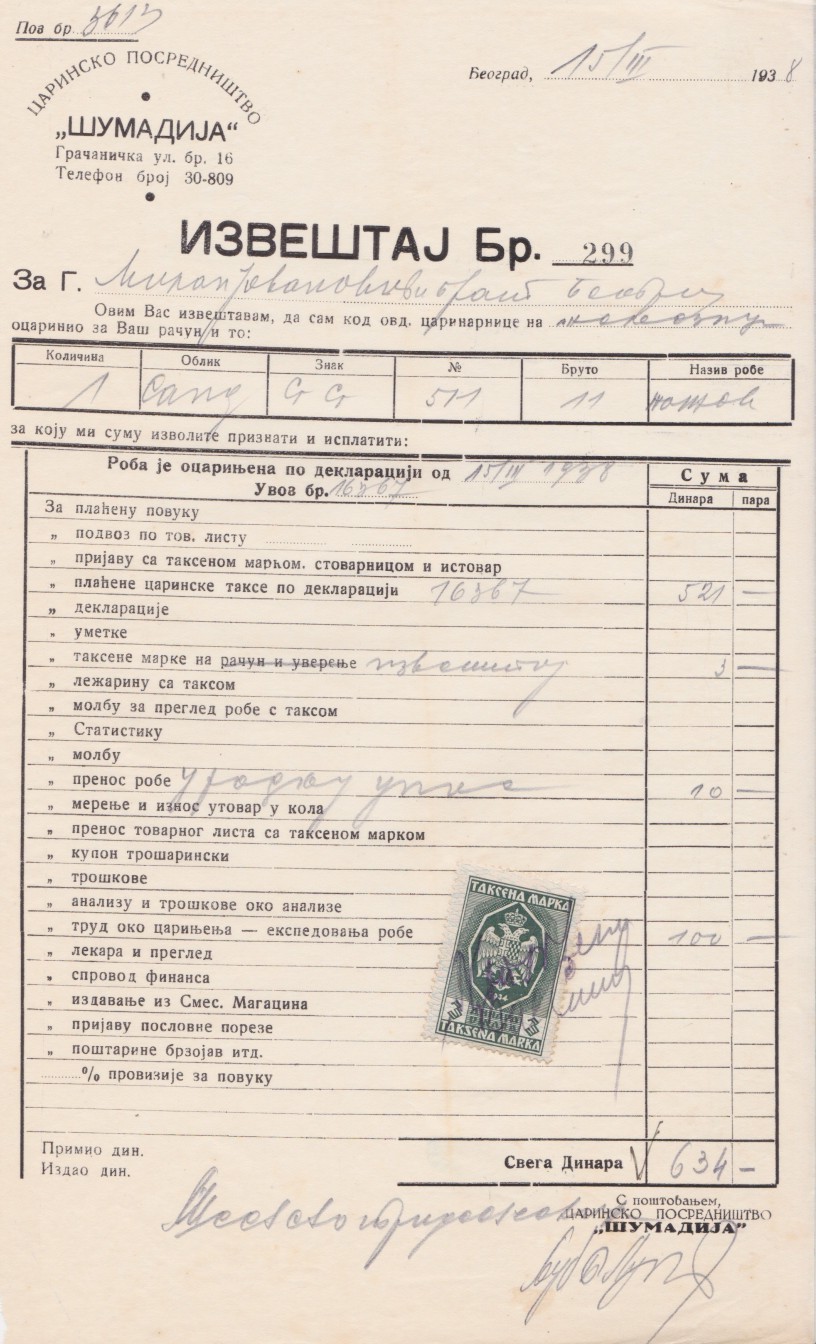 Пов бр. 5613
ЦАРИНСКО ПОСРЕДНИШТВО
„ШУМАДИЈА“
Грачаничка ул. бр. 16
Телефон број 30-809
Београд, 15/III 1938
ИЗВЕШТАЈ Бр. 299
За Г. Милан Јовановић и брат
Овим Вас извештавам, да сам код овд. царинарнице на
оцаринио за Ваш рачун и то:
Количина Облик Знак № Бруто Назив робе
1 санд 511 11
за коју ми суму изволите признати и исплатити:
Роба је оцарињена по декларацији од 15/III 1938
Увоз бр. 16367
Сума
Динара пара
За плаћену повуку
„ подвоз по тов. листу
„ пријаву са таксеном марком. стоварницом и истовар
„ плаћене царинске таксе по декларацији 16367 521 —
„ декларације
„ уметке
„ таксене марке на рачун и уверење извештај 3 —
„ лежарину са таксом
„ молбу за преглед робе с таксом
„ Статистику
„ молбу
„ пренос робе 10 —
„ мерење и износ утовар у кола
„ пренос товарног листа са таксеном марком
„ купон трошарински
„ трошкове
„ анализу и трошкове око анализе
„ труд око царињења — експедовања робе 100 —
„ лекара и преглед
„ спровод финанса
„ издавање из Смес. Магацина
„ пријаву пословне порезе
„ поштарине брзојав итд.
% провизије за повуку
ТАКСЕНА МАРКА
3 3
TAKSENA MARKA
Примио дин.
Издао дин.
Свега Динара 634 —
С поштовањем,
ЦАРИНСКО ПОСРЕДНИШТВО
„ШУМАДИЈА“